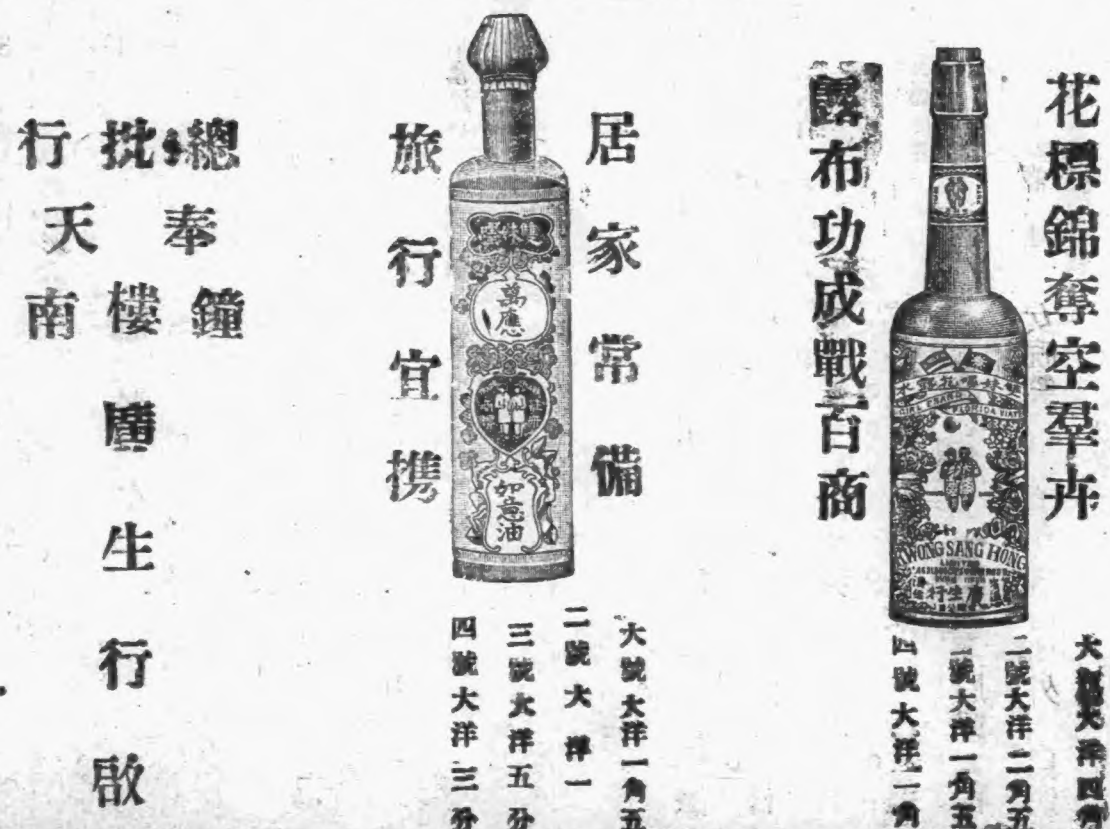 花標錦奪空羣卉
露布功成戰百商
GIRL BRAND
FLORIDA WATER
KWONG SANG HONG
LIMITED
廣生行
大 大洋四角
二號大洋二角五
號大洋一角五
四號大洋一角
居家常備
旅行宜攜
萬應
如意油
大號大洋一角五
二號大洋一
三號大洋五分
四號大洋三分
總批行
奉天
鐘樓南
廣生行啟